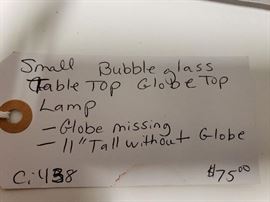 Small Bubble glass
Table Top Globe Top
Lamp
- Globe missing
- 11" Tall without Globe
Ci438 $75.00